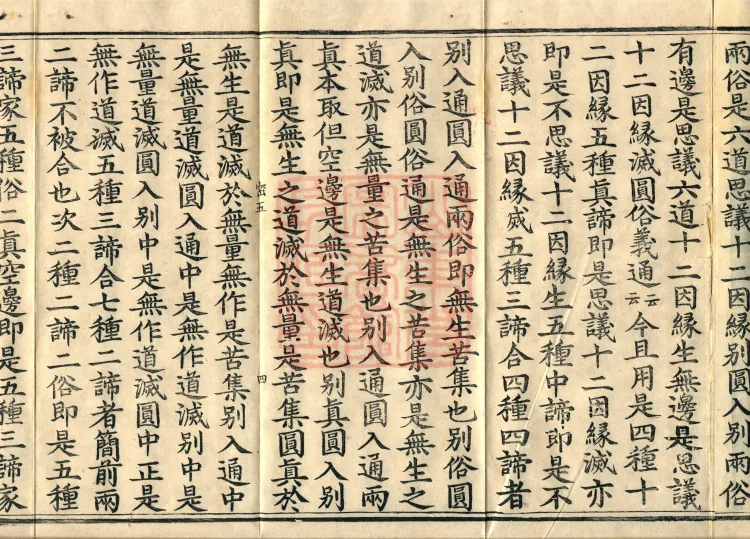 兩俗是六道思議十二因緣別圓入別兩俗
有邊是思議六道十二因緣生無邊是思議
十二因緣滅圓俗義通云云今且用是四種十
二因緣五種眞諦即是思議十二因緣滅亦
即是不思議十二因緣生五種中諦即是不
思議十二因緣滅五種三諦合四種四諦者
別入通圓入通兩俗即無生苦集也別俗圓
入別俗圓俗通是無生之苦集亦是無生之
道滅亦是無量之苦集也別入通圓入通兩
眞本取但空邊是無生道滅也別眞圓入別
眞即是無生之道滅於無量是苦集圓眞於
密五
四
無生是道滅於無量無作是苦集別入通中
是無量道滅圓入通中是無作道滅別中是
無量道滅圓入別中是無作道滅圓中正是
無作道滅五種三諦合七種二諦者簡前兩
二諦不被合也次二種二諦二俗即是五種
三諦家五種俗二眞空邊即是五種三諦家